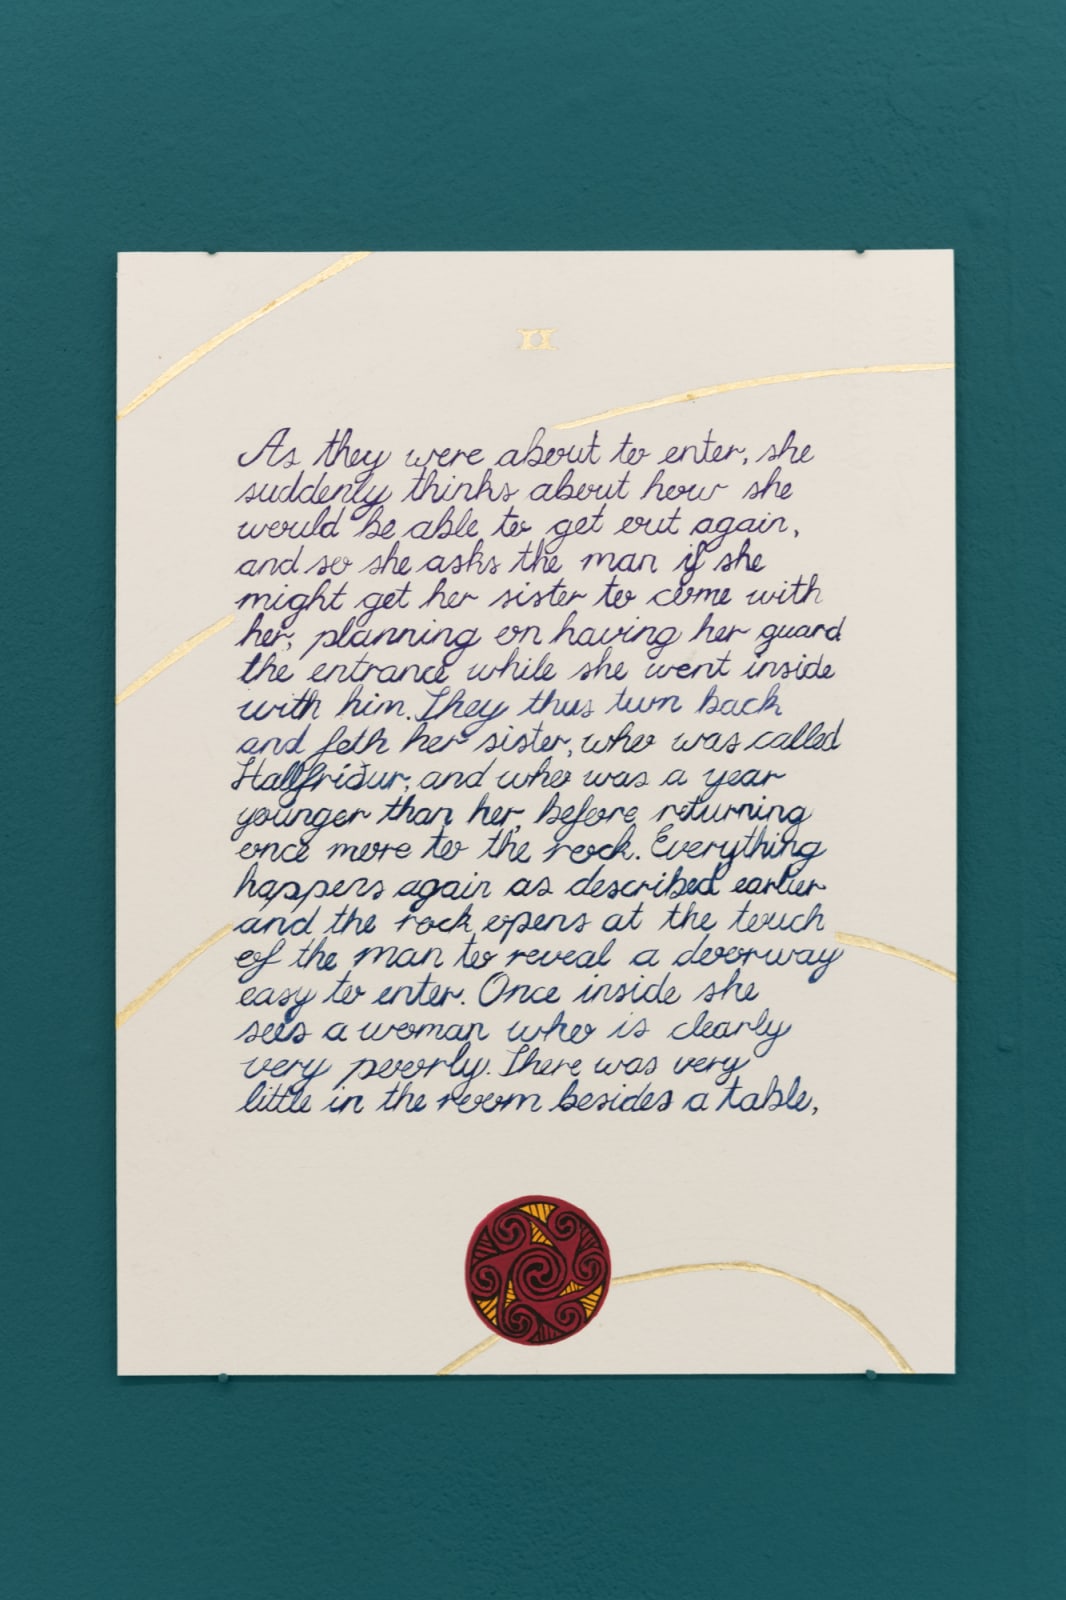 II
As they were about to enter, she
suddenly thinks about how she
would be able to get out again,
and so she asks the man if she
might get her sister to come with
her, planning on having her guard
the entrance while she went inside
with him. They thus turn back
and feth her sister, who was called
Hallfríður, and who was a year
younger than her, before returning
once more to the rock. Everything
happens again as described earlier
and the rock opens at the touch
of the man to reveal a doorway
easy to enter. Once inside she
sees a woman who is clearly
very poorly. There was very
little in the room besides a table,